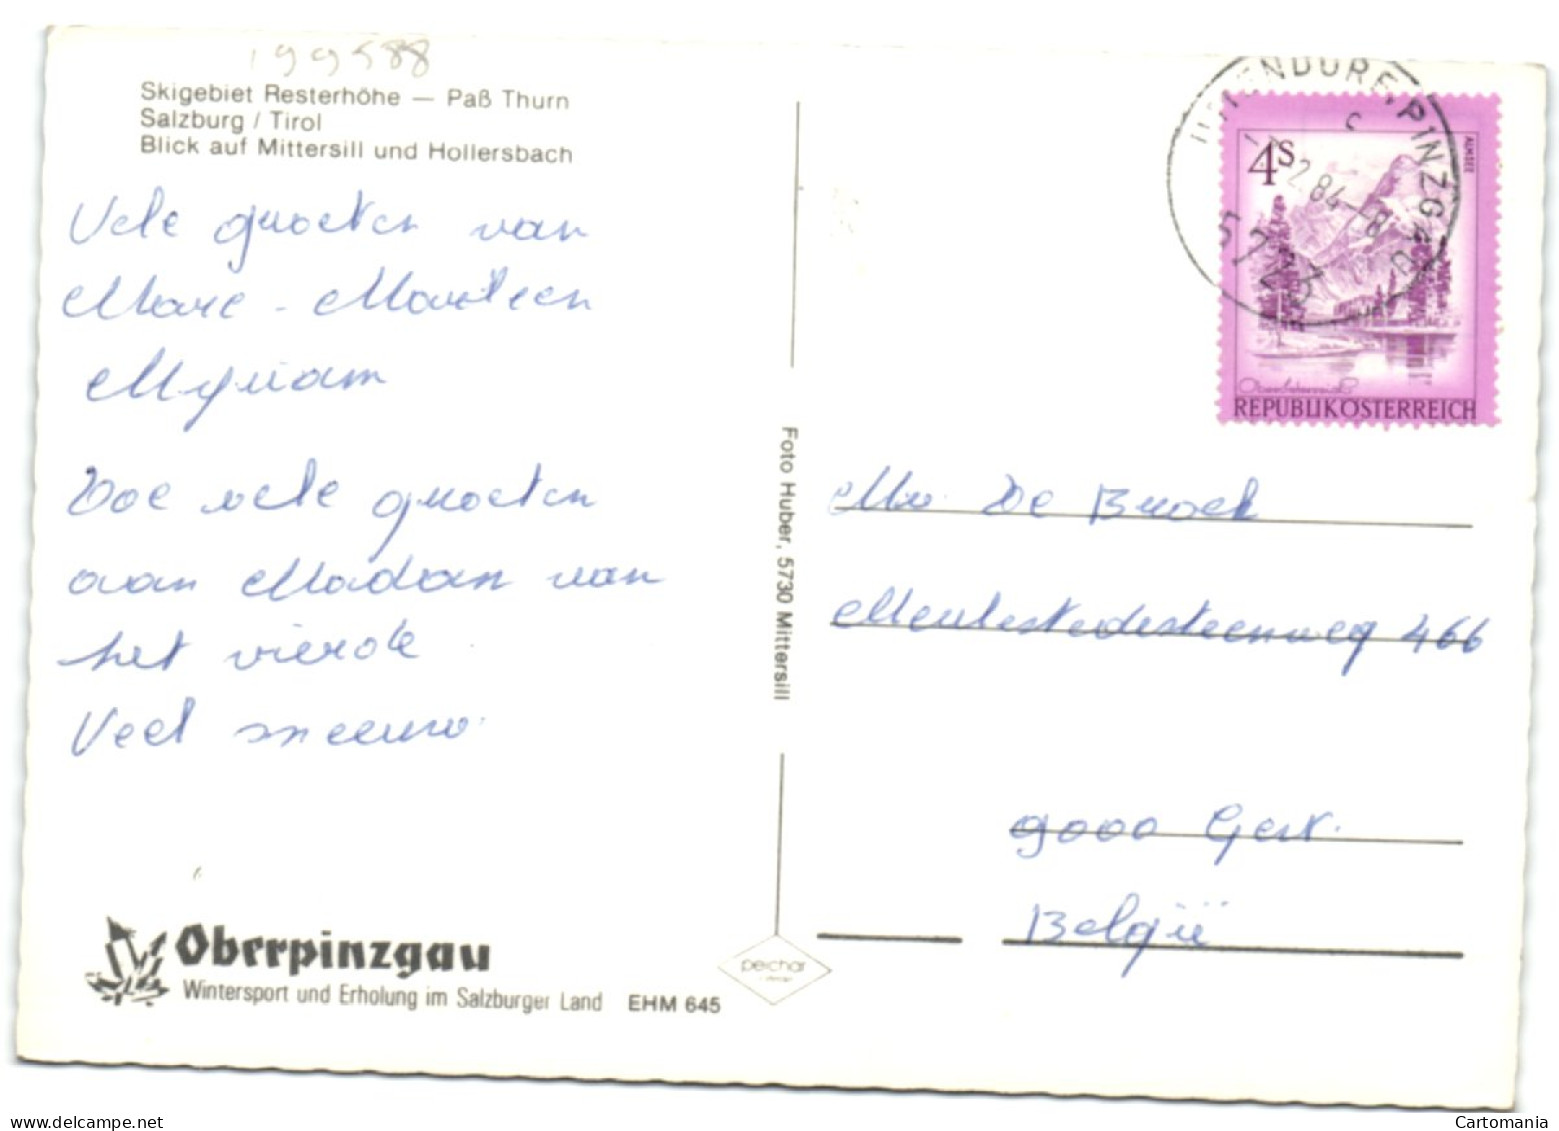 199588
Skigebiet Resterhöhe — Paß Thurn
Salzburg / Tirol
Blick auf Mittersill und Hollersbach
Vele groeten van
Marc - Marleen
Myriam
Doe vele groeten
aan Madam van
het vierde
Veel sneeuw.
Oberpinzgau
Wintersport und Erholung im Salzburger Land EHM 645
Foto Huber, 5730 Mittersill
peichar
UTTENDORF, PINZGAU
c
2.84-8
5723
4S
ALMSEE
Oberösterreich
REPUBLIK ÖSTERREICH
Mv. De Broek
Meulestedesteenweg 466
9000 Gent.
België
delcampe.net
Cartomania